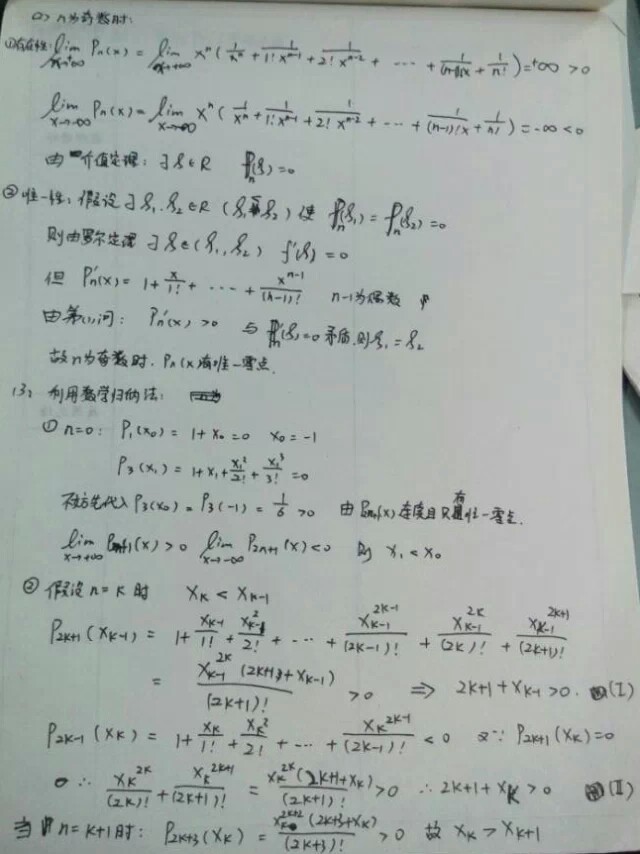 (2) n为奇数时:
①存在性: lim x→+∞ Pn(x) = lim x→+∞ xⁿ(1/xⁿ + 1/(1!xⁿ⁻¹) + 1/(2!xⁿ⁻²) + ··· + 1/((n-1)!x) + 1/n!) = +∞ > 0
lim x→-∞ Pn(x) = lim x→-∞ xⁿ(1/xⁿ + 1/(1!xⁿ⁻¹) + 1/(2!xⁿ⁻²) + ··· + 1/((n-1)!x) + 1/n!) = -∞ < 0
由 介值定理: ∃ξ∈R Pn(ξ)=0
②唯一性: 假设∃ξ₁,ξ₂∈R (ξ₁≠ξ₂) 使 Pn(ξ₁) = Pn(ξ₂) = 0
则由罗尔定理 ∃ξ∈(ξ₁,ξ₂) f'(ξ) = 0
但 Pn'(x) = 1 + x/1! + ··· + xⁿ⁻¹/(n-1)! n-1为偶数
由第(1)问: Pn'(x) > 0 与 Pn'(ξ)=0 矛盾,则ξ₁ = ξ₂
故n为奇数时, Pn(x)有唯一零点.
(3) 利用数学归纳法:
① n=0: P₁(x₀) = 1 + x₀ = 0 x₀ = -1
P₃(x₁) = 1 + x₁ + x₁²/2! + x₁³/3! = 0
不妨先代入 P₃(x₀) = P₃(-1) = 1/6 > 0 由 (x)连续且R有唯一零点.
lim x→+∞ P2n+1(x) > 0 lim x→-∞ P2n+1(x) < 0 则 x₁ < x₀
② 假设n=k时 xk < xk-1
P2k+1(xk-1) = 1 + xk-1/1! + xk-1²/2! + ··· + xk-1^(2k-1)/(2k-1)! + xk-1^(2k)/(2k)! + xk-1^(2k+1)/(2k+1)!
= xk-1^(2k)(2k+1+xk-1)/(2k+1)! > 0 ⇒ 2k+1+xk-1 > 0. (Ⅰ)
P2k-1(xk) = 1 + xk/1! + xk²/2! + ··· + xk^(2k-1)/(2k-1)! < 0 又∵ P2k+1(xk) = 0
∴ xk^(2k)/(2k)! + xk^(2k+1)/(2k+1)! = xk^(2k)(2k+1+xk)/(2k+1)! > 0 ∴ 2k+1+xk > 0 (Ⅱ)
当 n=k+1时: P2k+3(xk) = xk^(2k+2)(2k+3+xk)/(2k+3)! > 0 故 xk > xk+1